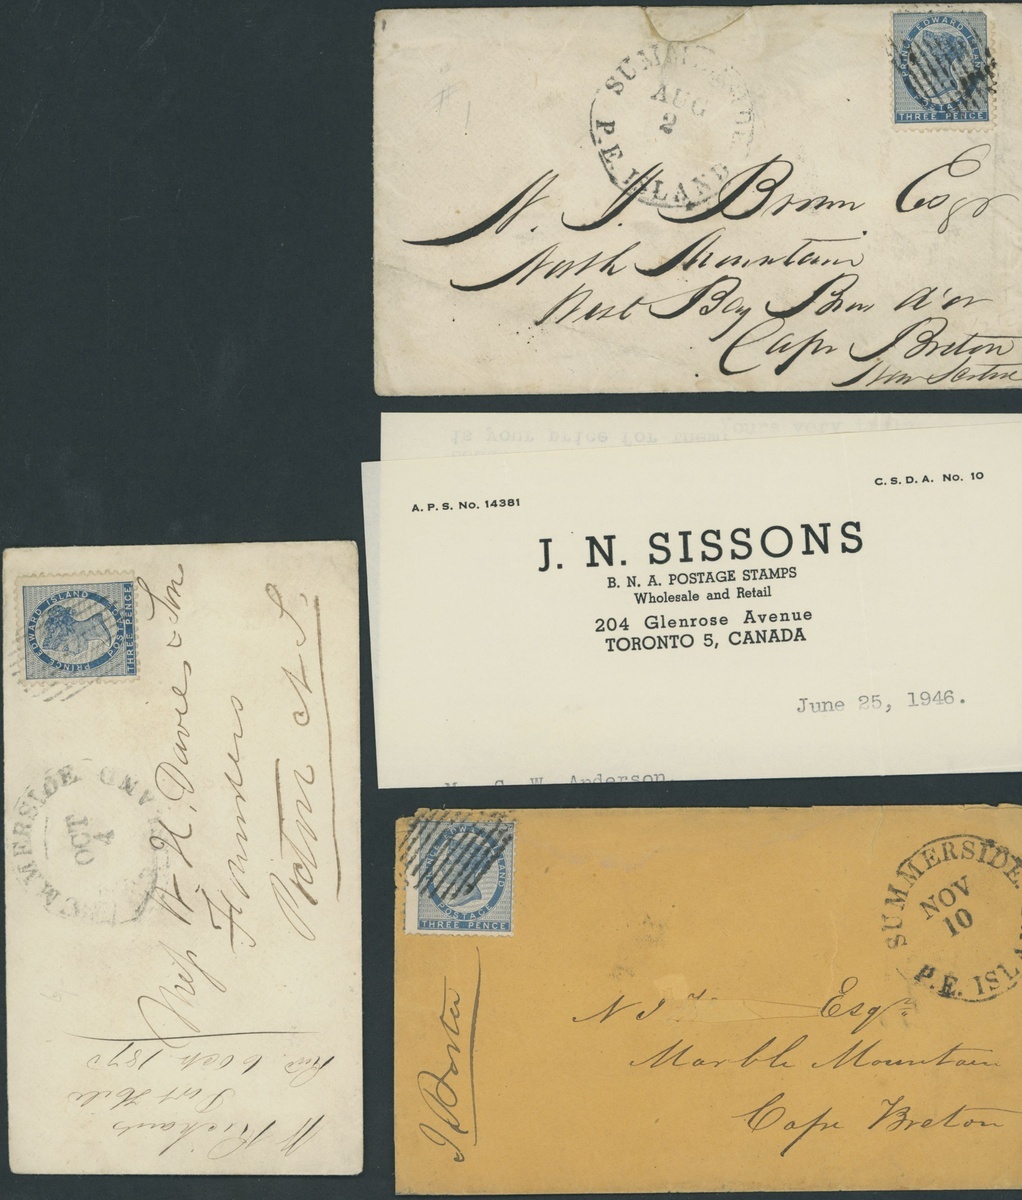 SUMMERSIDE
AUG
2
P.E. ISLAND
PRINCE EDWARD ISLAND
THREE PENCE
Brown Esqr
North Mountain
West Bay Bras d'or
Cape Breton
is your price for them
Yours very
A. P. S. No. 14381
C. S. D. A. No. 10
J. N. SISSONS
B. N. A. POSTAGE STAMPS
Wholesale and Retail
204 Glenrose Avenue
TORONTO 5, CANADA
June 25, 1946.
G. W. Anderson,
PRINCE EDWARD ISLAND
POSTAGE
THREE PENCE
SUMMERSIDE
OCT
Davies & Son
Pictou N. S.
Port Hill
6 Oct 187
POSTAGE
THREE PENCE
SUMMERSIDE.
NOV
10
P.E. ISLA
N J Esqr
Marble Mountain
Cape Breton